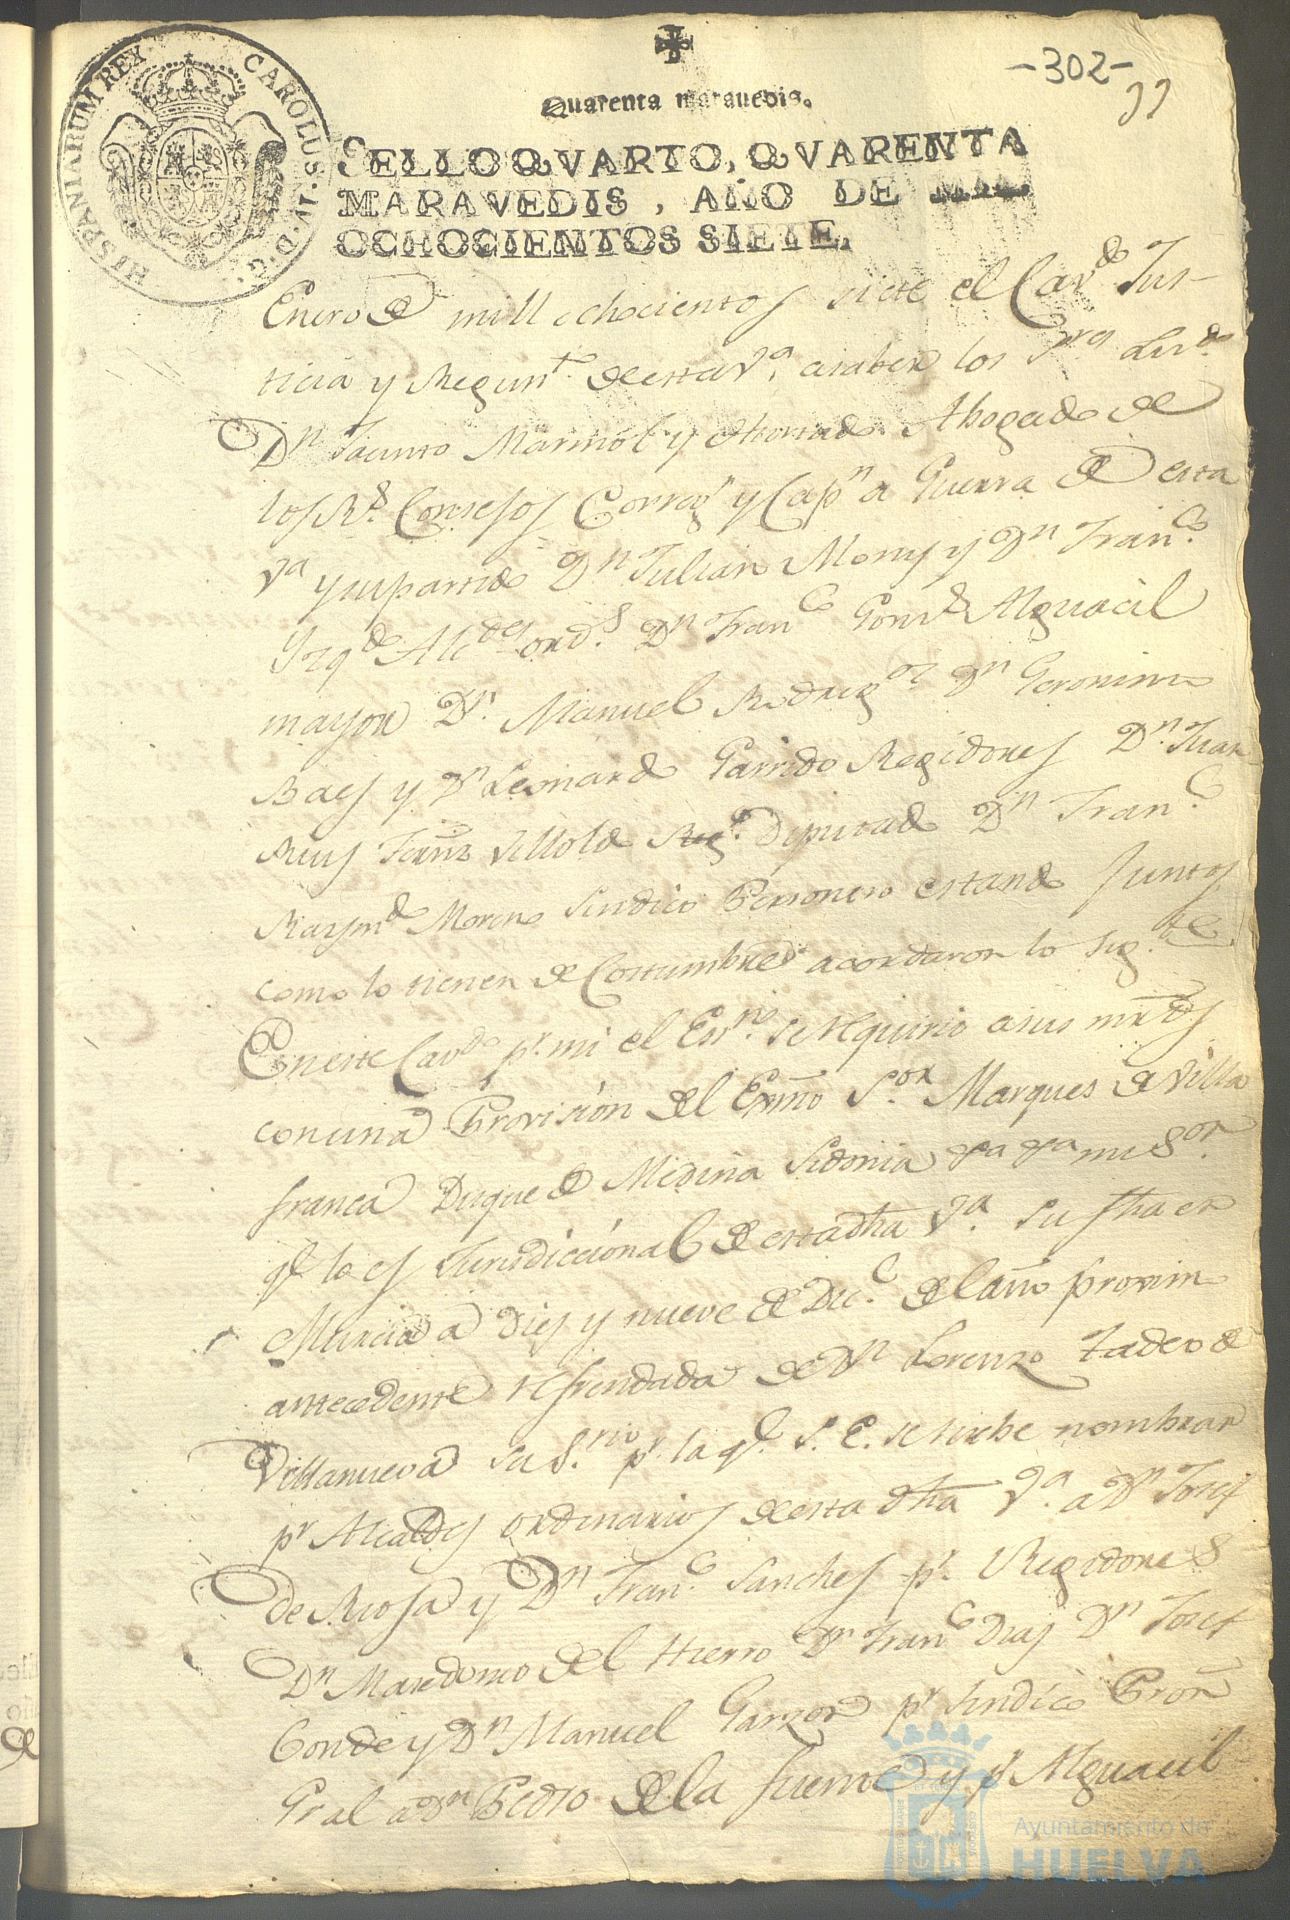 HISPANIARUM REX CAROLUS.IV.D.G.
-302-
Quarenta maravedis.
SELLO QVARTO, QVARENTA
MARAVEDIS, AÑO DE MIL
OCHOCIENTOS SIETE.
Enero de mill ochocientos siete el Cavdo Jus-
ticia y Regimto. de esta Va. a saber los Sres Lisdo.
Dn Jacinto Marmol y Abogado de
los Rs. Consejos Corregr y Capn a Guerra de esta
Va y su partido Dn Julian Mony y Dn Franco.
Izqdo Alcdes ords. Dn Franco Gonz Alguacil
mayor Dn. Manuel Rodrig Dn Geronimo
Baes y Dn Leonardo Garrido Regidores Dn. Juan
Reus Fernz Villolde Diputado Dn Franco.
Raymdo Moreno Sindico Personero estando Juntos
como lo tienen de Costumbre acordaron lo sigte.
En este Cavdo pr. mi el Esno. se requirio a sus mrds
con una Provision del Exmo Sor Marques de Villa
franca Duque de Medina Sidonia mi Sor.
qe lo es Jurisdiccional de esta dha Va. su fha en
Murcia a dies y nueve de Dice. del año proximo
antecedente refrendada de Dn Lorenzo Tadeo de
Villanueva su Srio pr la qe. S. E. se sirbe nombrar
pr Alcaldes ordinarios de esta dha Va. a Dn Josef
de Rioja y Dn Franco. Sanches pr. Regidores
Dn Masedonio del Hierro Dn Franco Dias Dn Josef
Conde y Dn Manuel Garzon pr Sindico Pror
Gral a Dn Pedro de la Fuente y pr Alguacil
Ayuntamiento de
HUELVA